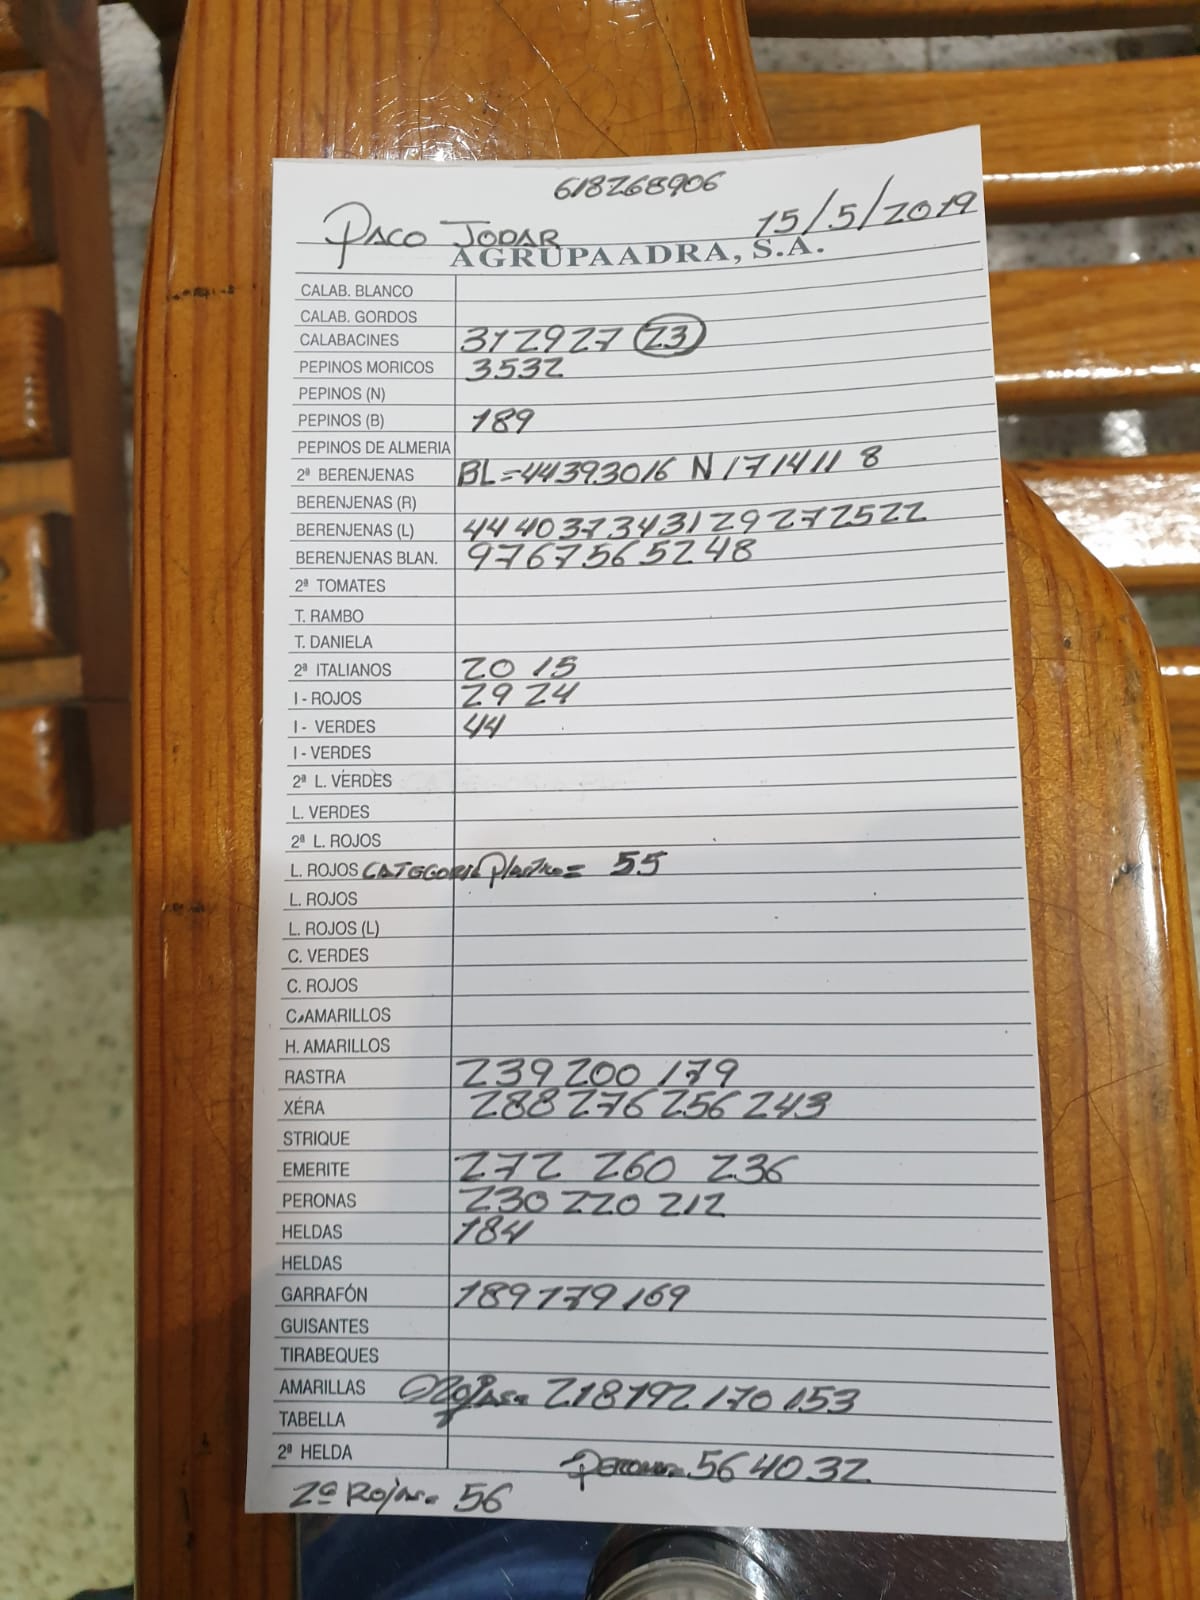 618268906
PACO JODAR 15/5/2019
AGRUPAADRA, S.A.
CALAB. BLANCO
CALAB. GORDOS
CALABACINES 31 29 27 23
PEPINOS MORICOS 35 32
PEPINOS (N)
PEPINOS (B) 189
PEPINOS DE ALMERIA
2ª BERENJENAS BL=44 39 30 16 N 17 14 11 8
BERENJENAS (R)
BERENJENAS (L) 44 40 37 34 31 29 27 25 22
BERENJENAS BLAN. 97 67 56 52 48
2ª TOMATES
T. RAMBO
T. DANIELA
2ª ITALIANOS 20 15
I - ROJOS 29 24
I - VERDES 44
I - VERDES
2ª L. VERDES
L. VERDES
2ª L. ROJOS
L. ROJOS CATEGORIA Plastico= 55
L. ROJOS
L. ROJOS (L)
C. VERDES
C. ROJOS
C. AMARILLOS
H. AMARILLOS
RASTRA 239 200 179
XÉRA 288 276 256 243
STRIQUE
EMERITE 272 260 236
PERONAS 230 220 212
HELDAS 184
HELDAS
GARRAFÓN 189 179 169
GUISANTES
TIRABEQUES
AMARILLAS Rojas= 218 192 170 153
TABELLA
2ª HELDA Perona= 56 40 32
2ª Rojas= 56